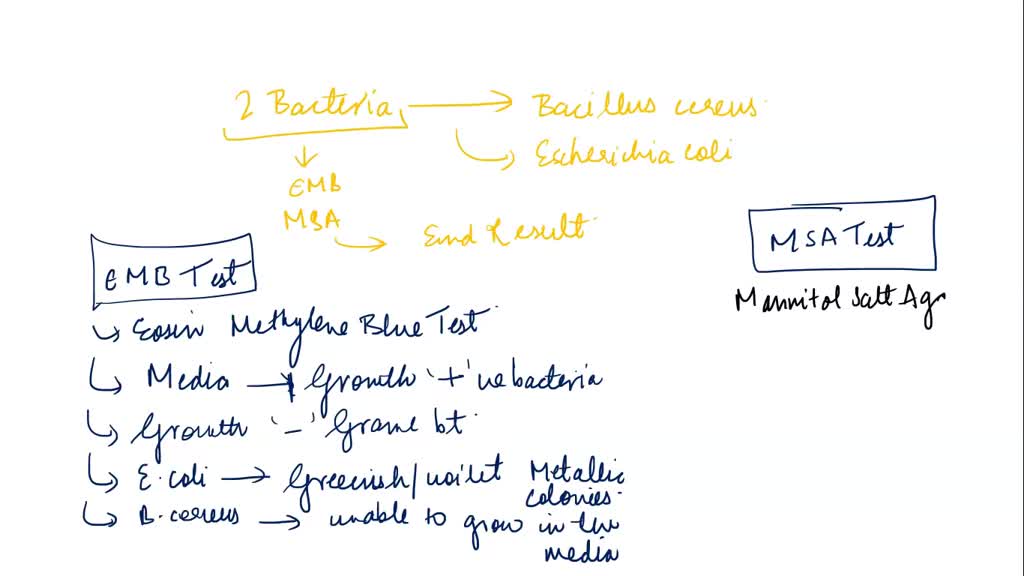 2 Bacteria → Bacillus cereus
Escherichia coli
EMB
MSA → End Result
EMB Test
MSA Test
Mannitol Salt Ag
Eosin Methylene Blue Test
Media → Growth '+' ve bacteria
Growth '-' Grame bt
E. coli → Greenish/voilet Metallic
colonies.
B. cereus → unable to grow in the
media